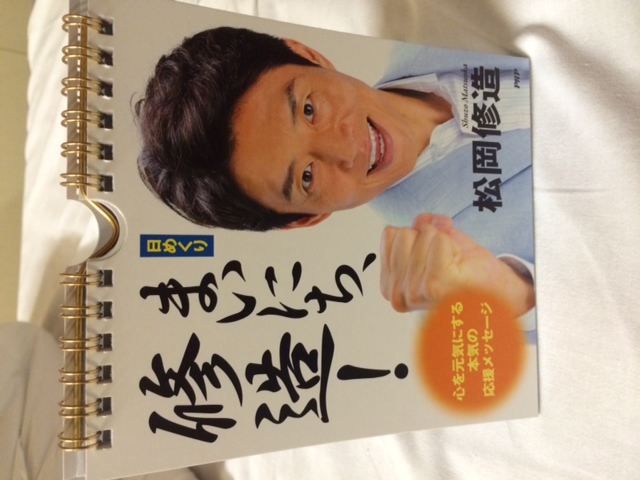 日めくり
まいにち、
修造!
心を元気にする
本気の
応援メッセージ
松岡修造
Shuzo Matsuoka
PHP